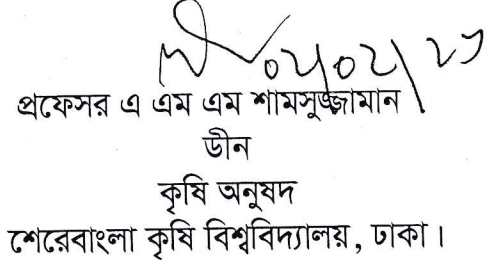 ০২/০২/২১
প্রফেসর এ এম এম শামসুজ্জামান
ডীন
কৃষি অনুষদ
শেরেবাংলা কৃষি বিশ্ববিদ্যালয়, ঢাকা।